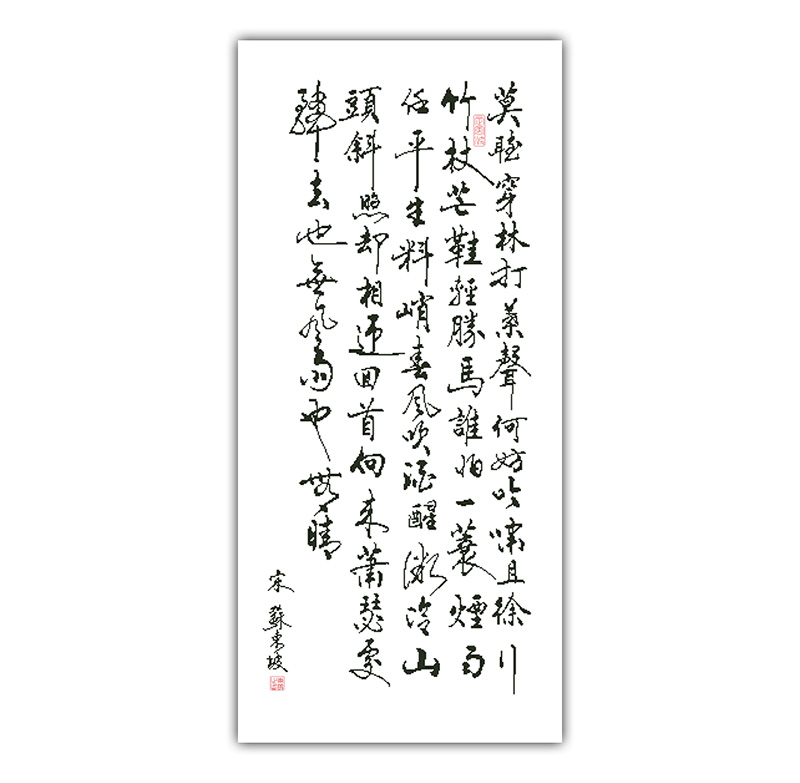 莫聽穿林打葉聲何妨吟嘯且徐行
竹杖芒鞋輕勝馬誰怕一蓑煙雨
任平生料峭春風吹酒醒微冷山
頭斜照却相迎回首向來蕭瑟處
歸去也無風雨也無晴
宋 蘇東坡